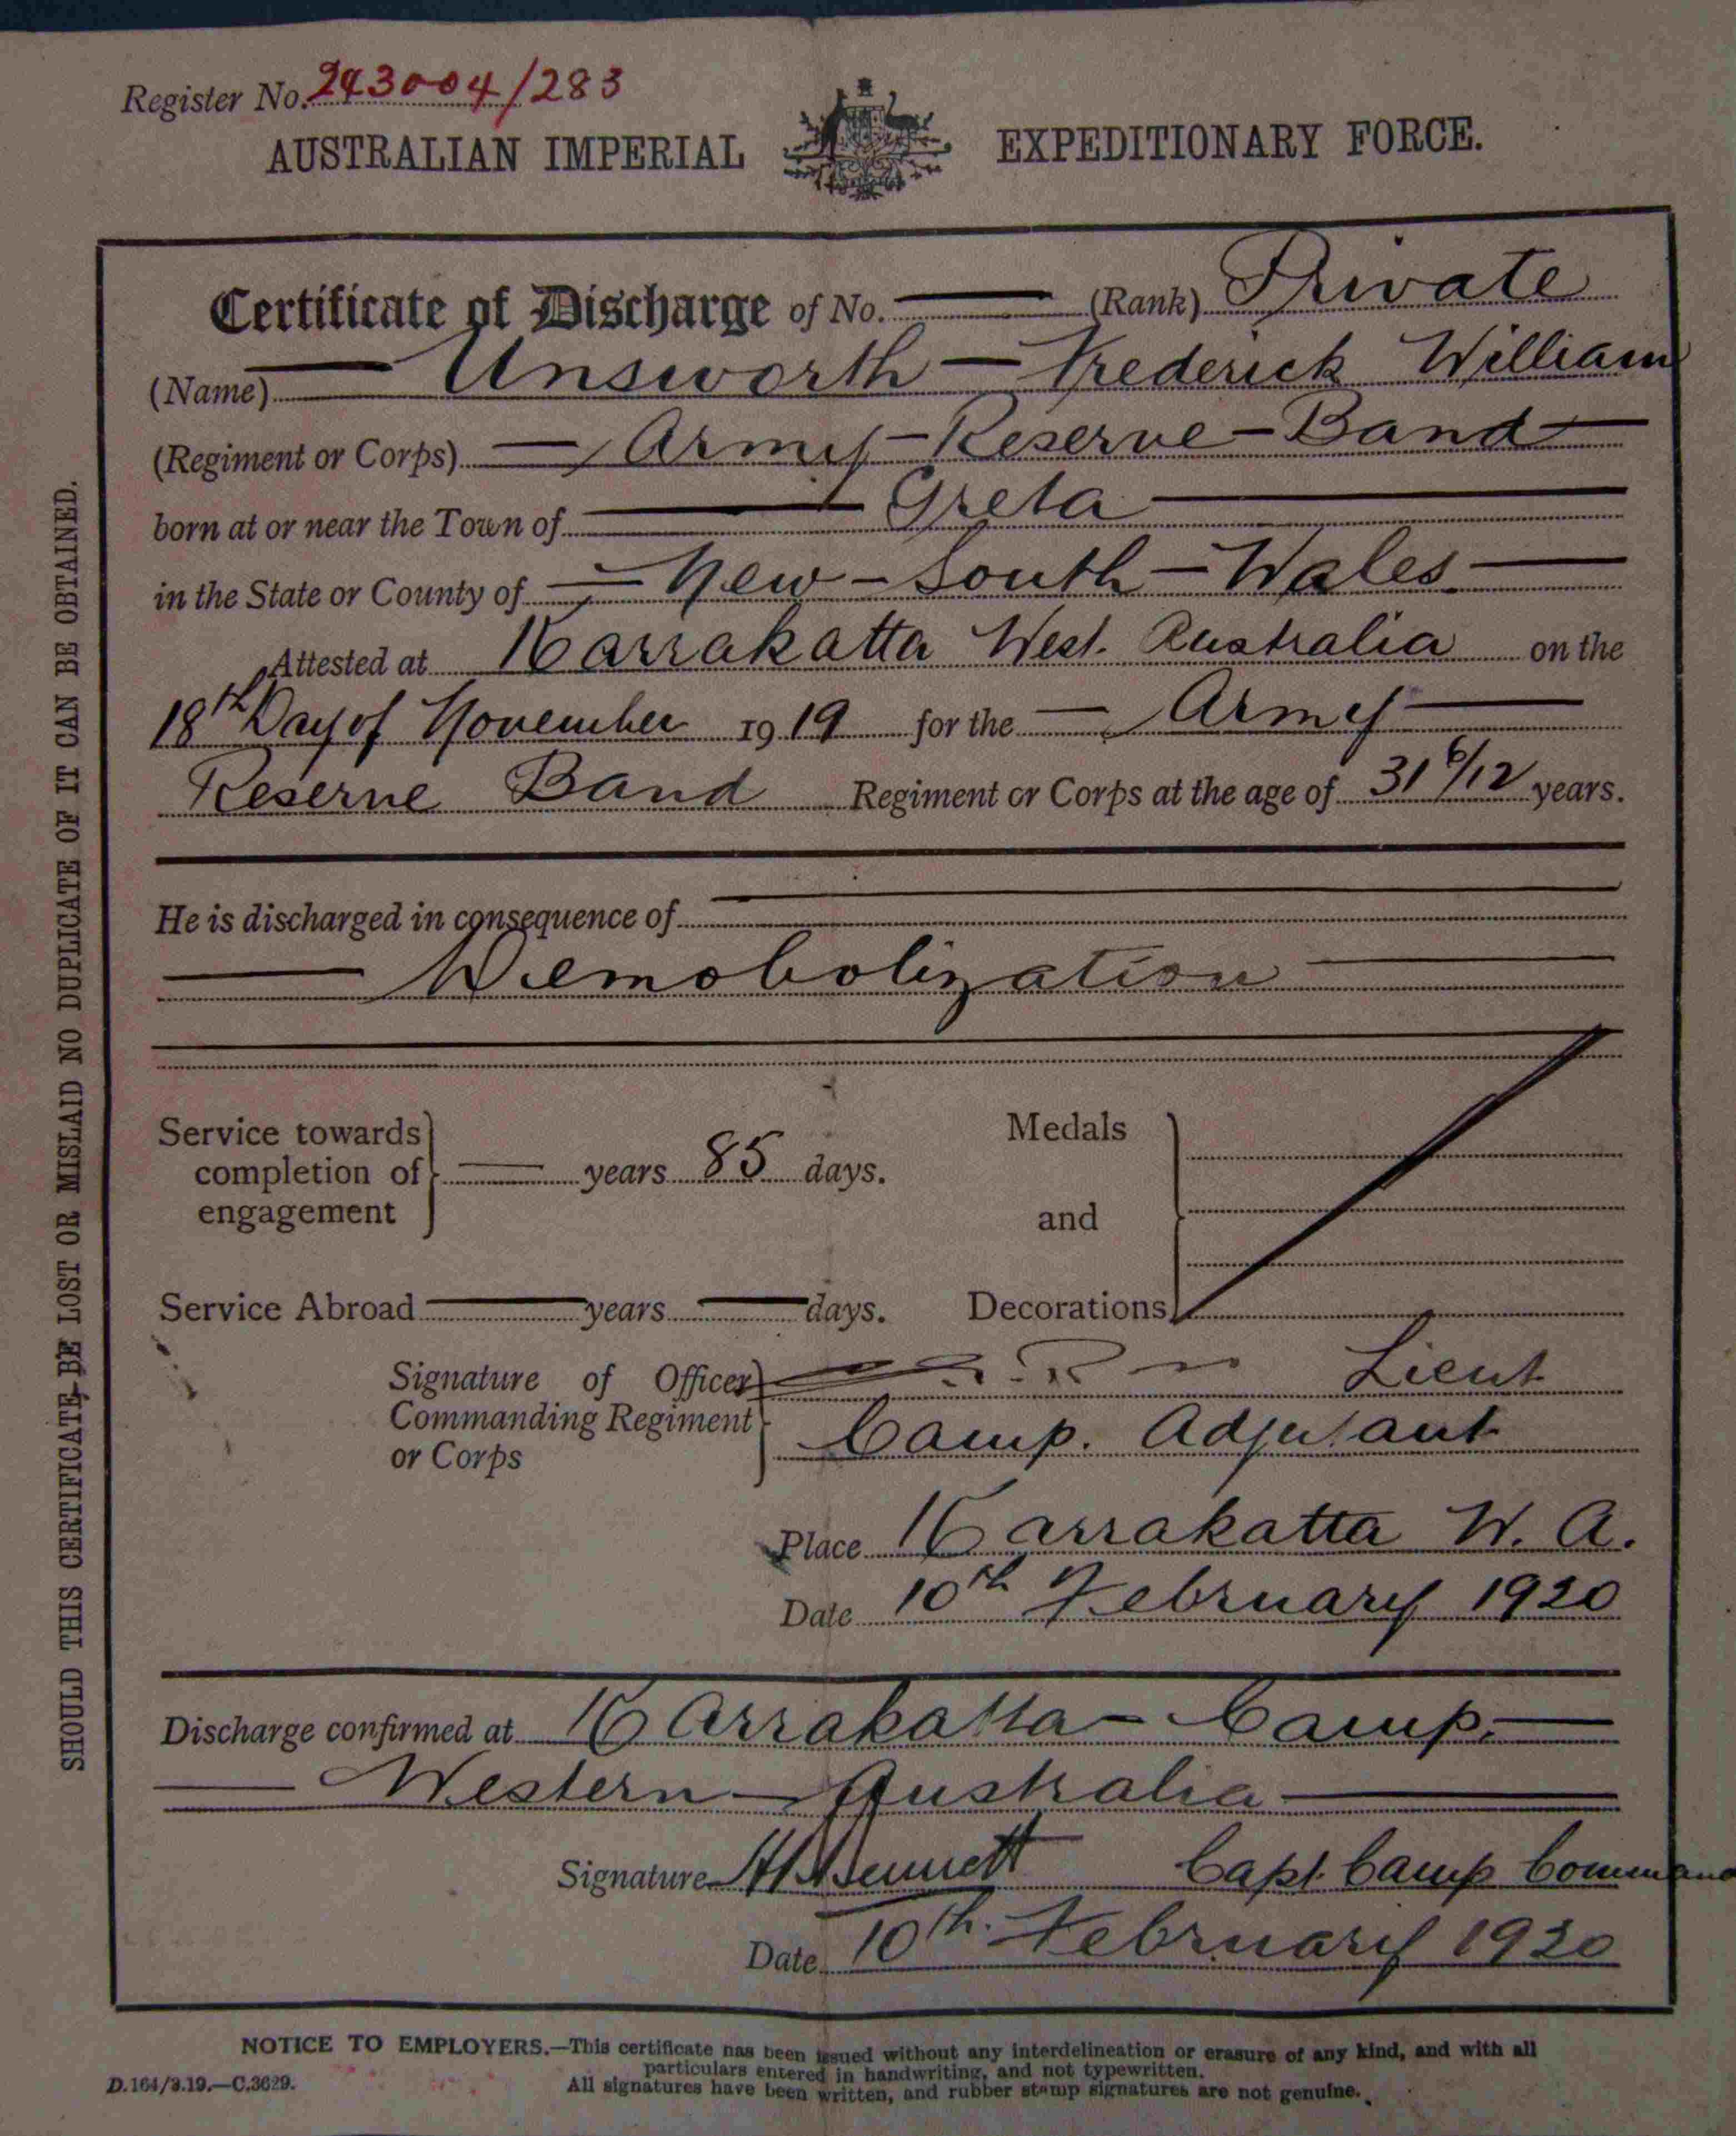 Register No. 243004/283
AUSTRALIAN IMPERIAL EXPEDITIONARY FORCE.
Certificate of Discharge of No. — (Rank) Private
(Name) — Unsworth — Frederick William
(Regiment or Corps) — Army — Reserve — Band —
born at or near the Town of — Greta —
in the State or County of — New — South — Wales —
Attested at Karrakatta West. Australia on the
18th Day of November 1919 for the — Army —
Reserve Band Regiment or Corps at the age of 31 6/12 years.
He is discharged in consequence of —
— Demobolization —
Service towards completion of engagement — years 85 days.
Medals and Decorations
Service Abroad — years — days.
Signature of Officer Lieut
Commanding Regiment Camp. Adjutant
or Corps
Place Karrakatta W. A.
Date 10th February 1920
Discharge confirmed at Karrakatta — Camp. —
— Western — Australia —
Signature Bennett Capt. Camp Command
Date 10th. February 1920
SHOULD THIS CERTIFICATE BE LOST OR MISLAID NO DUPLICATE OF IT CAN BE OBTAINED.
NOTICE TO EMPLOYERS.—This certificate has been issued without any interdelineation or erasure of any kind, and with all
particulars entered in handwriting, and not typewritten.
D.164/3.19.—C.3629.
All signatures have been written, and rubber stamp signatures are not genuine.